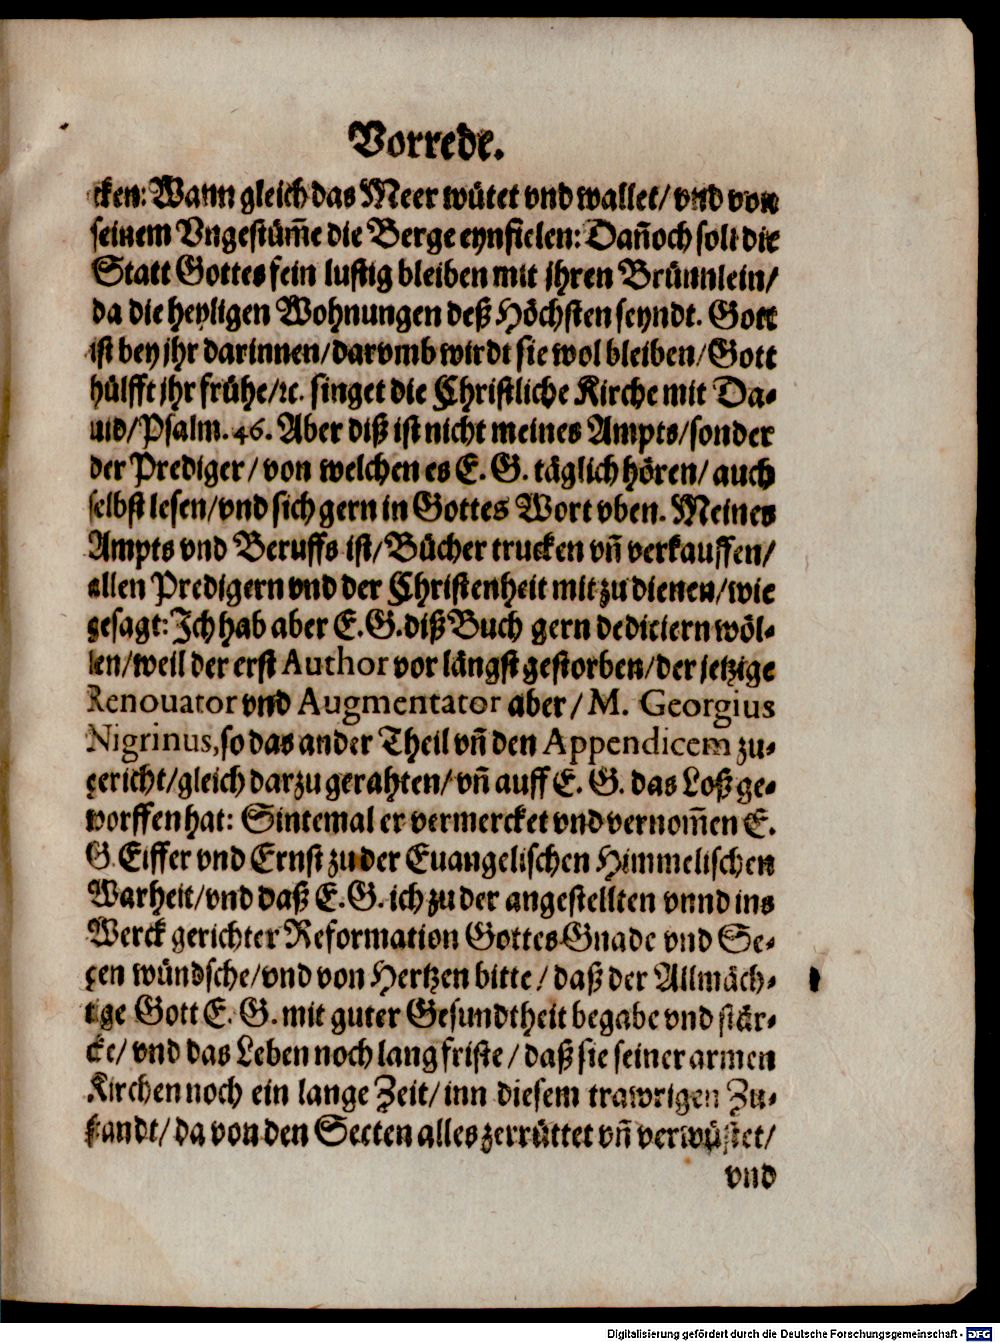 Vorrede.
cken: Wann gleich das Meer wütet vnd wallet/ vnd von
seinem Vngestüm̃e die Berge eynfielen: Dañoch solt die
Statt Gottes fein lustig bleiben mit jhren Brünnlein/
da die heyligen Wohnungen deß Höchsten seyndt. Gott
ist bey jhr darinnen/ darvmb wirdt sie wol bleiben/ Gott
hülfft jhr frühe/ ꝛc. singet die Christliche Kirche mit Da-
uid/ Psalm. 46. Aber diß ist nicht meines Ampts/ sonder
der Prediger/ von welchen es E. G. täglich hören/ auch
selbst lesen/ vnd sich gern in Gottes Wort vben. Meines
Ampts vnd Beruffs ist/ Bücher trucken vñ verkauffen/
allen Predigern vnd der Christenheit mit zu dienen/ wie
gesagt: Ich hab aber E. G. diß Buch gern dediciern wöl-
len/ weil der erst Author vor längst gestorben/ der jetzige
Renouator vnd Augmentator aber/ M. Georgius
Nigrinus, so das ander Theil vñ den Appendicem zu-
gericht/ gleich darzu gerahten/ vñ auff E. G. das Loß ge-
worffen hat: Sintemal er vermercket vnd vernom̃en E.
G. Eiffer vnd Ernst zu der Euangelischen Himmelischen
Warheit/ vnd daß E. G. ich zu der angestellten vnnd ins
Werck gerichter Reformation Gottes Gnade vnd Se-
gen wündsche/ vnd von Hertzen bitte/ daß der Allmäch-
tige Gott E. G. mit guter Gesundtheit begabe vnd stär-
cke/ vnd das Leben noch lang friste/ daß sie seiner armen
Kirchen noch ein lange Zeit/ inn diesem trawrigen Zu-
standt/ da von den Secten alles zerrüttet vñ verwüstet/
vnd
Digitalisierung gefördert durch die Deutsche Forschungsgemeinschaft - DFG